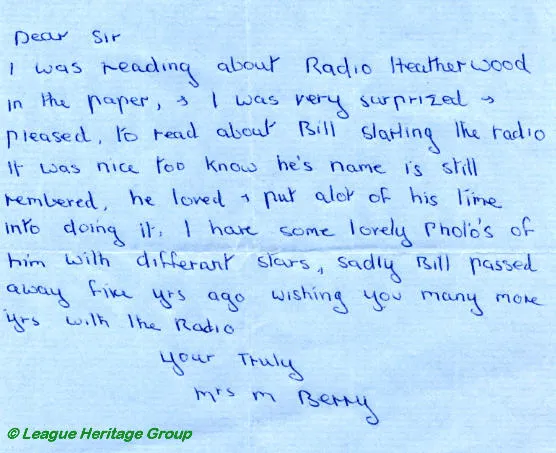 Dear Sir
I was reading about Radio Heatherwood
in the paper, & I was very surprized &
pleased, to read about Bill starting the radio
It was nice too know he's name is still
rembered, he loved & put alot of his time
into doing it, I have some lovely Photo's of
him with differant stars, sadly Bill passed
away five yrs ago wishing you many more
yrs with the Radio
your Truly
Mrs M Berry
© League Heritage Group